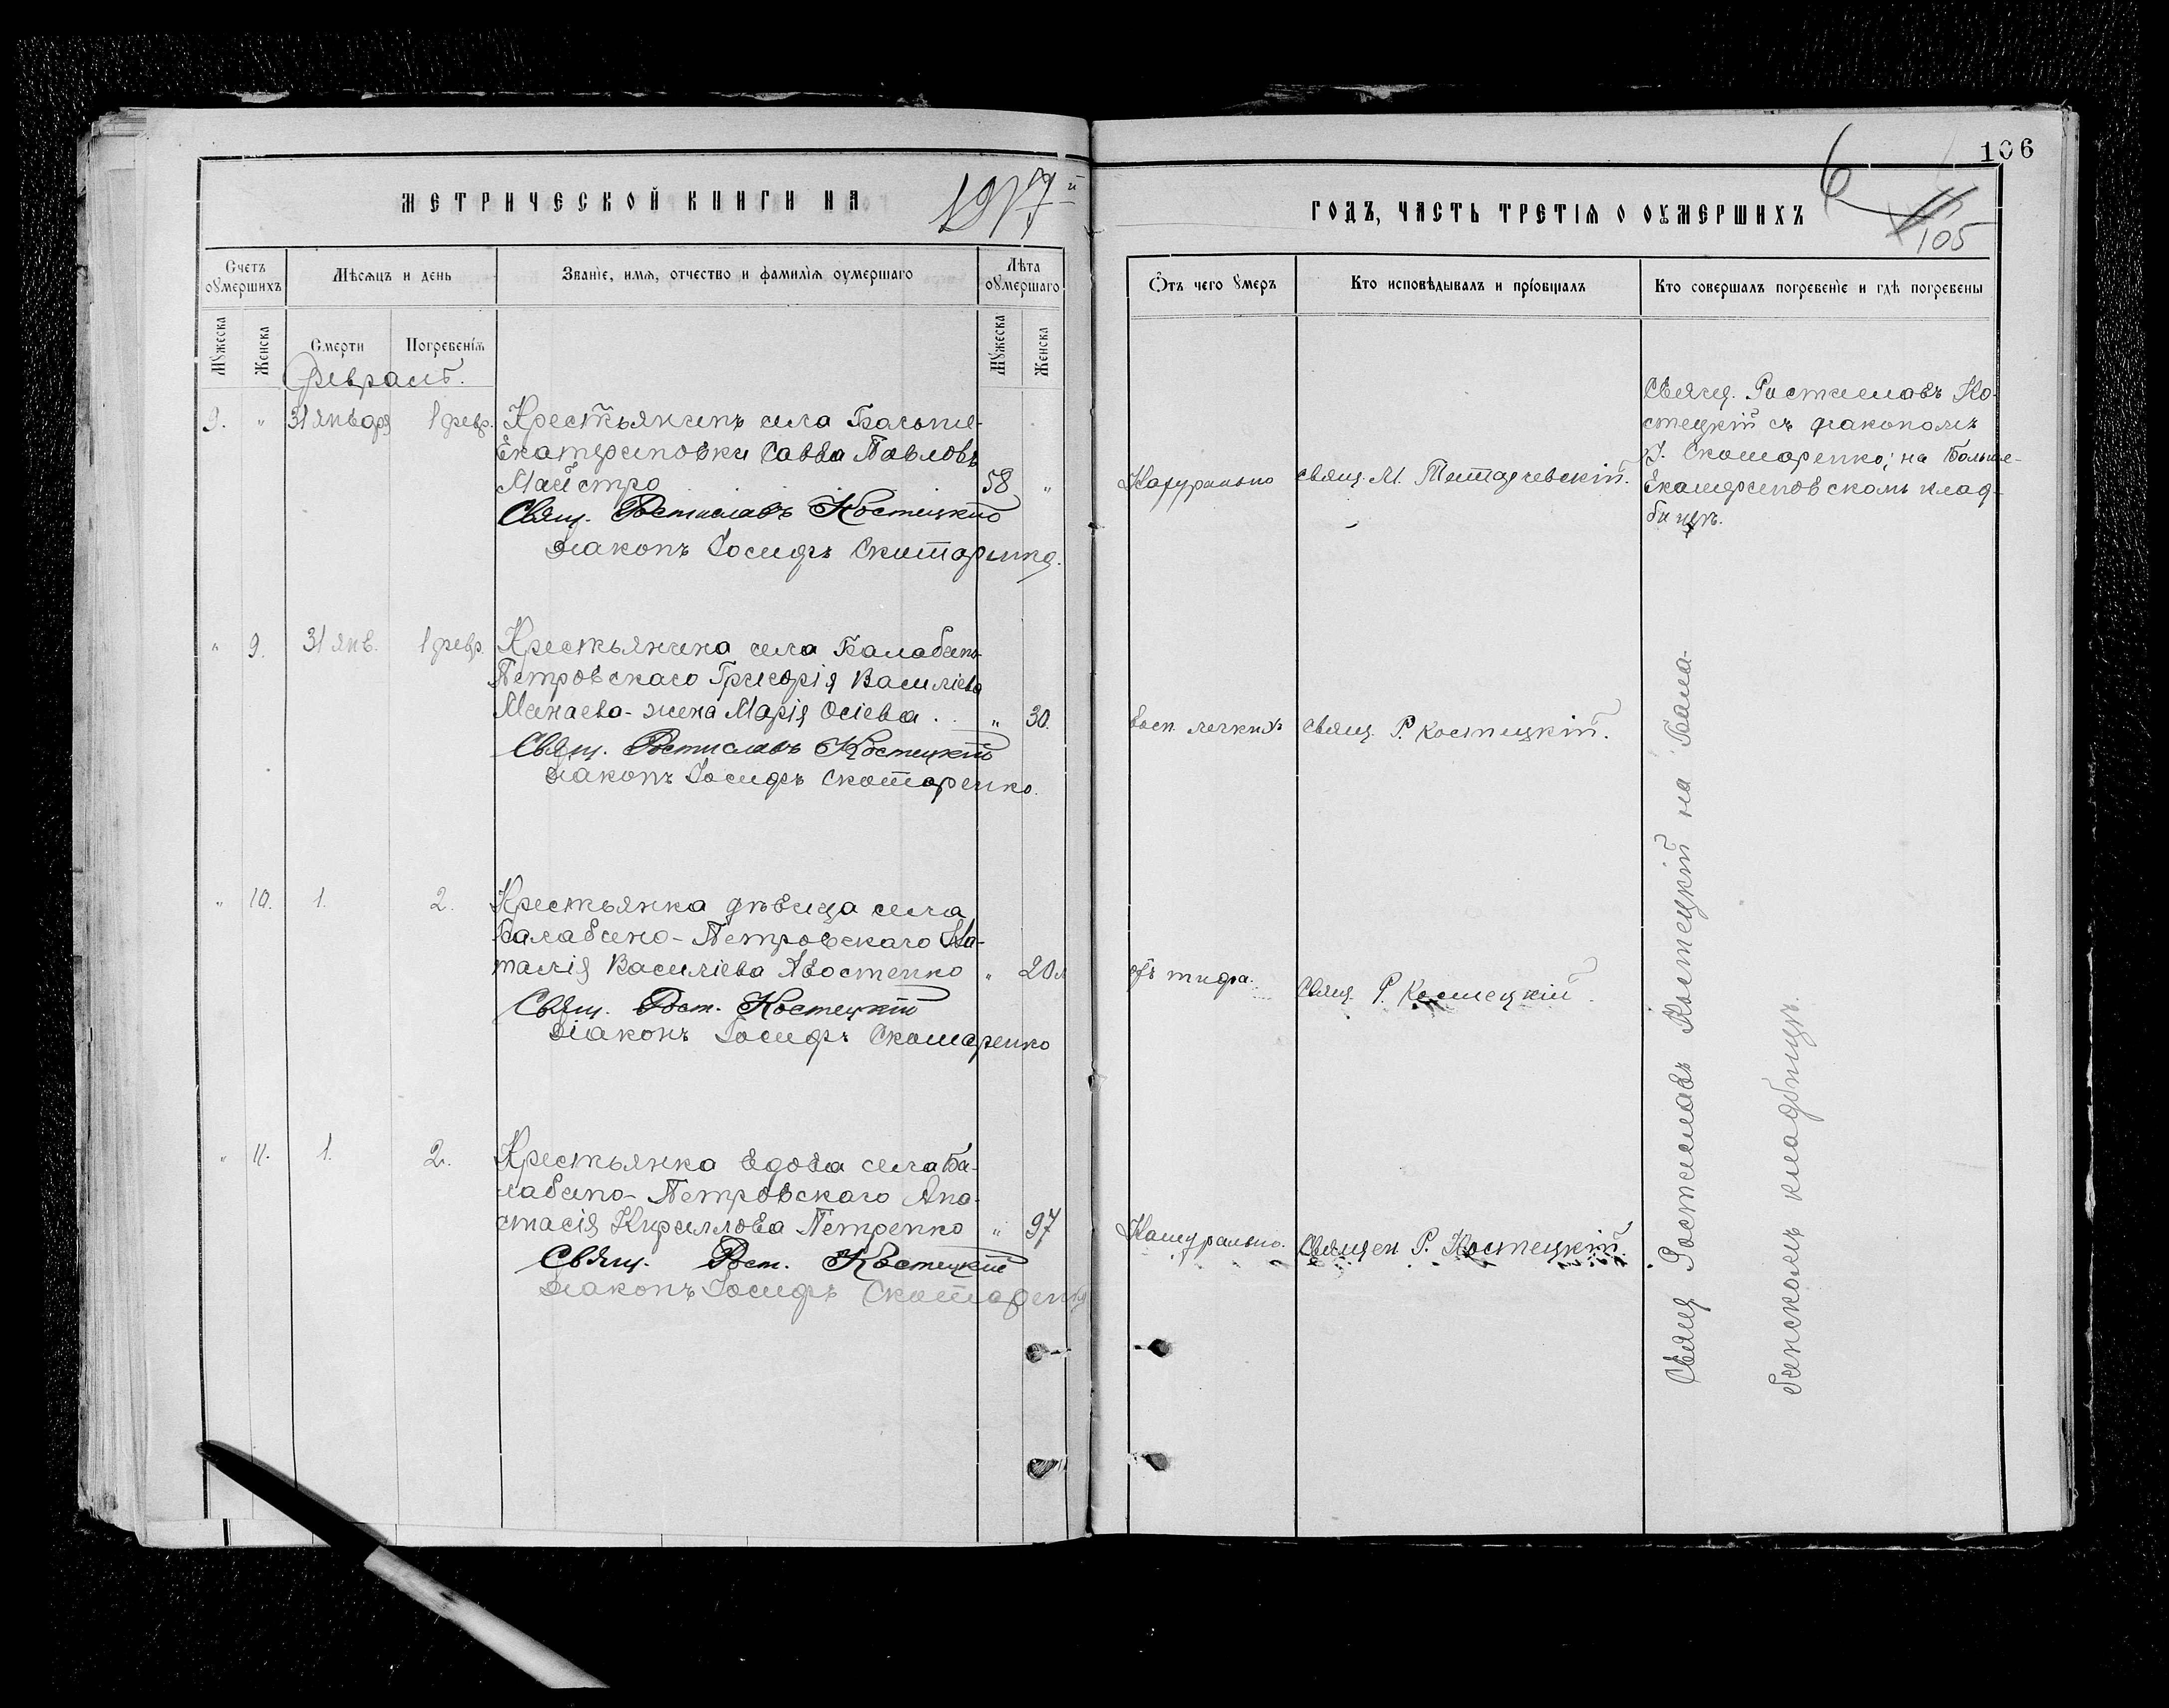 106
6
11
105
МЕТРИЧЕСКОЙ КНИГИ НА 1917 й
ГОДЪ, ЧАСТЬ ТРЕТІЯ О ОУМЕРШИХЪ
Счетъ оумершихъ
Мѣсяцъ и день
Званіе, имя, отчество и фамилія оумершаго
Лѣта оумершаго
Отъ чего умеръ
Кто исповѣдывалъ и пріобщалъ
Кто совершалъ погребеніе и гдѣ погребены
Мужеска
Женска
Смерти
Погребенія
Мужеска
Женска
Февраль.
9. " 31 января 1 февр. Крестьянинъ села Больше-
Екатериновки Савва Павловъ
Майстро 58 "
Свящ. Ростиславъ Костецкій
Діаконъ Іосифъ Скотаренко.
Натурально
Свящ. М. Титаревскій.
Свящ. Ростиславъ Ко-
стецкій съ діакономъ
І. Скотаренко; на Больше-
Екатериновскомъ клад-
бищѣ.
" 9. 31 янв. 1 февр. Крестьянина села Балабино-
Петровскаго Григорія Василіева
Минаева - жена Марія Осіева . . " 30.
Свящ. Ростиславъ Костецкій
Діаконъ Іосифъ Скотаренко.
Восп. легкихъ
Свящ. Р. Костецкій.
" 10. 1. 2. Крестьянка дѣвица села
Балабино-Петровскаго На-
талія Василіева Хвостенко " 20 л
Свящ. Рост. Костецкій
Діаконъ Іосифъ Скотаренко
Отъ тифа.
Свящ. Р. Костецкій.
" 11. 1. 2. Крестьянка вдова села Ба-
лабино-Петровскаго Ана-
стасія Кириллова Петренко " 97
Свящ. Рост. Костецкій
Діаконъ Іосифъ Скотаренко
Натурально.
Священ. Р. Костецкій.
Свящ Ростиславъ Костецкій на Бала-
бинскомъ кладбищѣ.